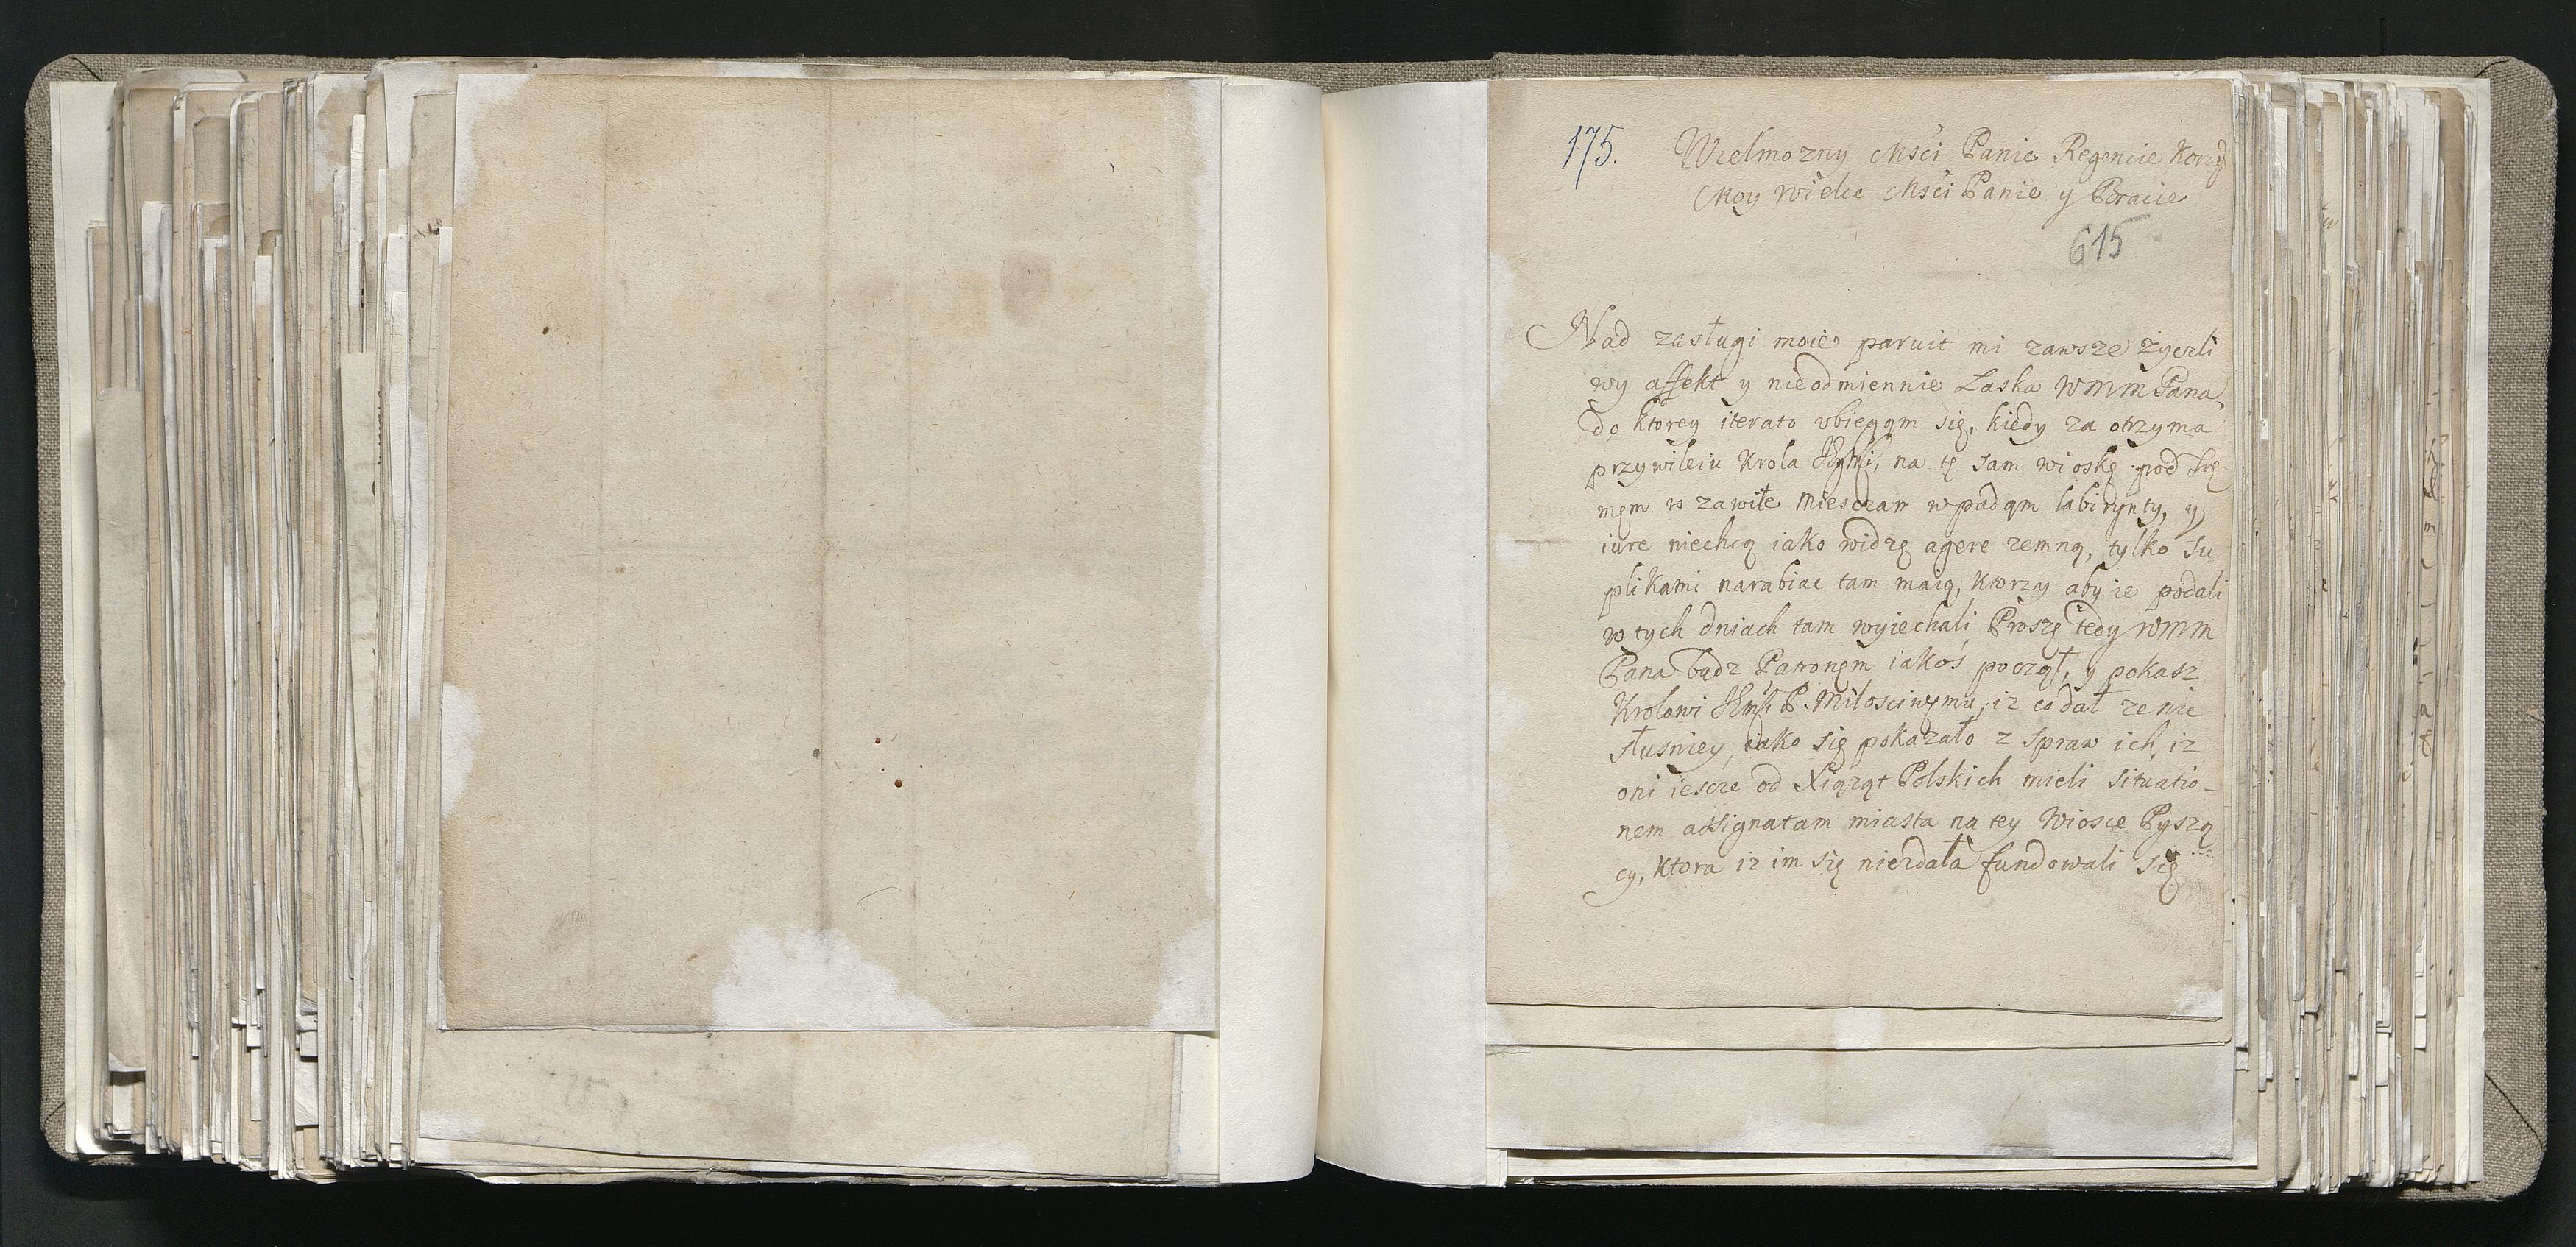 175.
Wielmozny Msći Panie Regencie
Moy wielce Msći Panie y Bracie
615
Nad zasługi moie paruit mi zawsze życzli
wy affekt y nieodmiennie Laska WMM Pana,
do ktorey iterato vbiegąm się, kiedy za otrzyma
przywileiu Krola na tę sam wioskę pod Srę
męm w zawiłe Miesczan wpadąm labirynty, y
iure niechcą iako widzę agere zemną, tylko su
plikami narabiac tam maią, Ktorzy aby ie podali
w tych dniach tam wyiechali Proszę tedy WMM
Pana bądz Patronęm iakoś począł, y pokasz
Krolowi P. Miłosciwemu, iz co dał ze nie
słusniey, iako się pokazało z spraw ich, iz
oni iescze od Xiąząt Polskich mieli situatio-
nem assignatam miasta na tey Wiosce Pyszą
cy, Ktora iz im się niezdała fundowali się